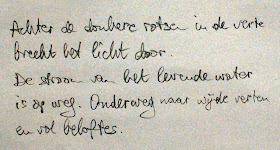 Achter de donkere rotsen in de verte
breekt het licht door.
De stroom van het levende water
is op weg. Onderweg naar wijde verten
en vol beloftes.